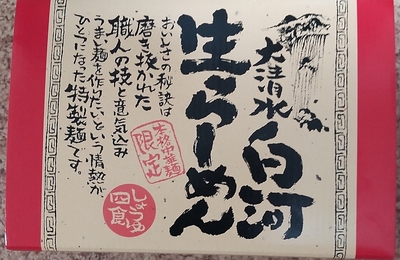 大清水
白河
生らーめん
おいしさの秘訣は
磨き抜かれた
職人の技と意気込み
うまい麺を作りたいという情熱が
ひとつになった特製麺です。
本格中華麺
限定
しょうゆ
四食